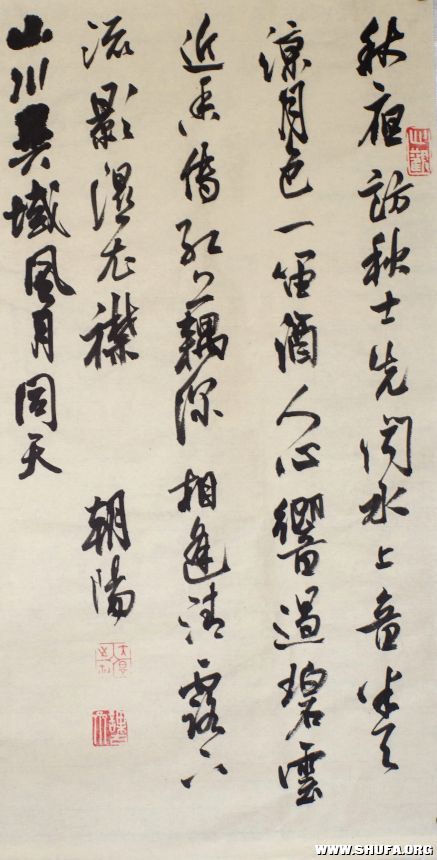 秋夜訪秋士先聞水上音半天
涼月色一笛酒人心響遏碧雲
近香傳紅藕深相逢清露下
流影濕衣襟 朝陽
山川異域風月同天
WWW.SHUFA.ORG